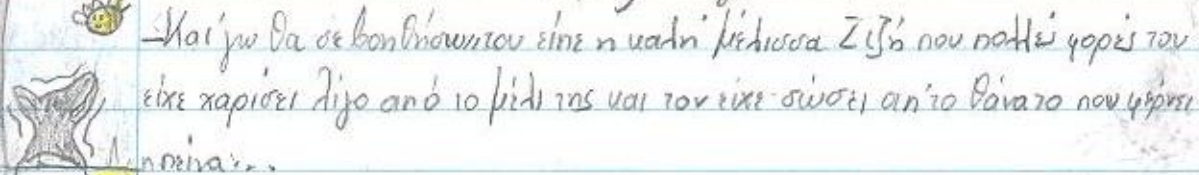 –Και γω θα σε βοηθήσω, του είπε η καλή μέλισσα Ζιζή που πολλές φορές του
είχε χαρίσει λίγο από το μέλι της και τον είχε σώσει απ' το θάνατο που φέρνει
η πείνα...